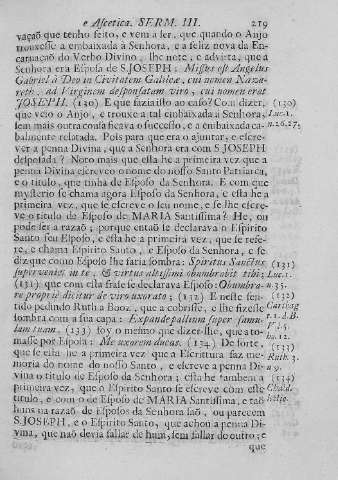 e Ascetica. SERM. III. 219
vaçaõ que tenho feito, e vem a ser, que quando o Anjo
trouxesse a embaixada à Senhora, e a feliz nova da En-
carnaçaõ do Verbo Divino, lhe note, e advirta, que a
Senhora era Esposa de S. JOSEPH: Missus est Angelus
Gabriel à Deo in Civitatem Galileæ, cui nomen Naza-
reth, ad Virginem desponsatam viro, cui nomen erat
JOSEPH. (130) E que fazia isto ao caso? Com dizer,
que veio o Anjo, e trouxe a tal embaixada à Senhora,
sem mais outra cousa ficava o successo, e a embaixada ca-
balmente relatada. Pois para que era o ajuntar, e escre-
ver a penna Divina, que a Senhora era com S. JOSEPH
desposada? Noto mais que esta he a primeira vez que a
penna Divina escreveo o nome do nosso Santo Patriarca,
e o titulo, que tinha de Esposo da Senhora. E com que
mysterio se chama agora Esposo da Senhora, e esta he a
primeira vez, que se escreve o seu nome, e se lhe escre-
ve o titulo de Esposo de MARIA Santissima? He, ou
pode ser a razaõ; porque entaõ se declarava o Espirito
Santo seu Esposo, e esta he a primeira vez, que se refe-
re, e chama Espirito Santo, e Esposo da Senhora, e se
diz que como Esposo lhe faria sombra: Spiritus Sanctus
superveniet in te, & virtus altissimi obumbrabit tibi;
(131) que com esta frase se declarava Esposo: Obumbra-
re propriè dicitur de viro uxorato; (132) E neste sen-
tido pedindo Ruth a Booz, que a cobrisse, e lhe fizesse
sombra com a sua capa: Expande pallium super famu-
lam tuam, (133) foy o mesmo que dizer-lhe, que a to-
masse por Esposa: Me uxorem ducas. (134) De sorte,
que se esta he a primeira vez que a Escritura faz me-
moria do nome do nosso Santo, e escreve a penna Di-
vina o titulo de Esposo da Senhora; esta he tambem a
primeira vez, que o Espirito Santo se escreve com este
titulo, e com o de Esposo de MARIA Santissima, e taõ
huns na razaõ de Esposos da Senhora saõ, ou parecem
S. JOSEPH, e o Espirito Santo, que achou a penna Di-
vina, que naõ devia fallar de hum, sem fallar do outro; e
que
(130)
Luc. 1.
n. 26. 27.
(131)
Luc. 1.
n. 35.
(132)
(133)
Ruth. 3.
n. 9.
(134)